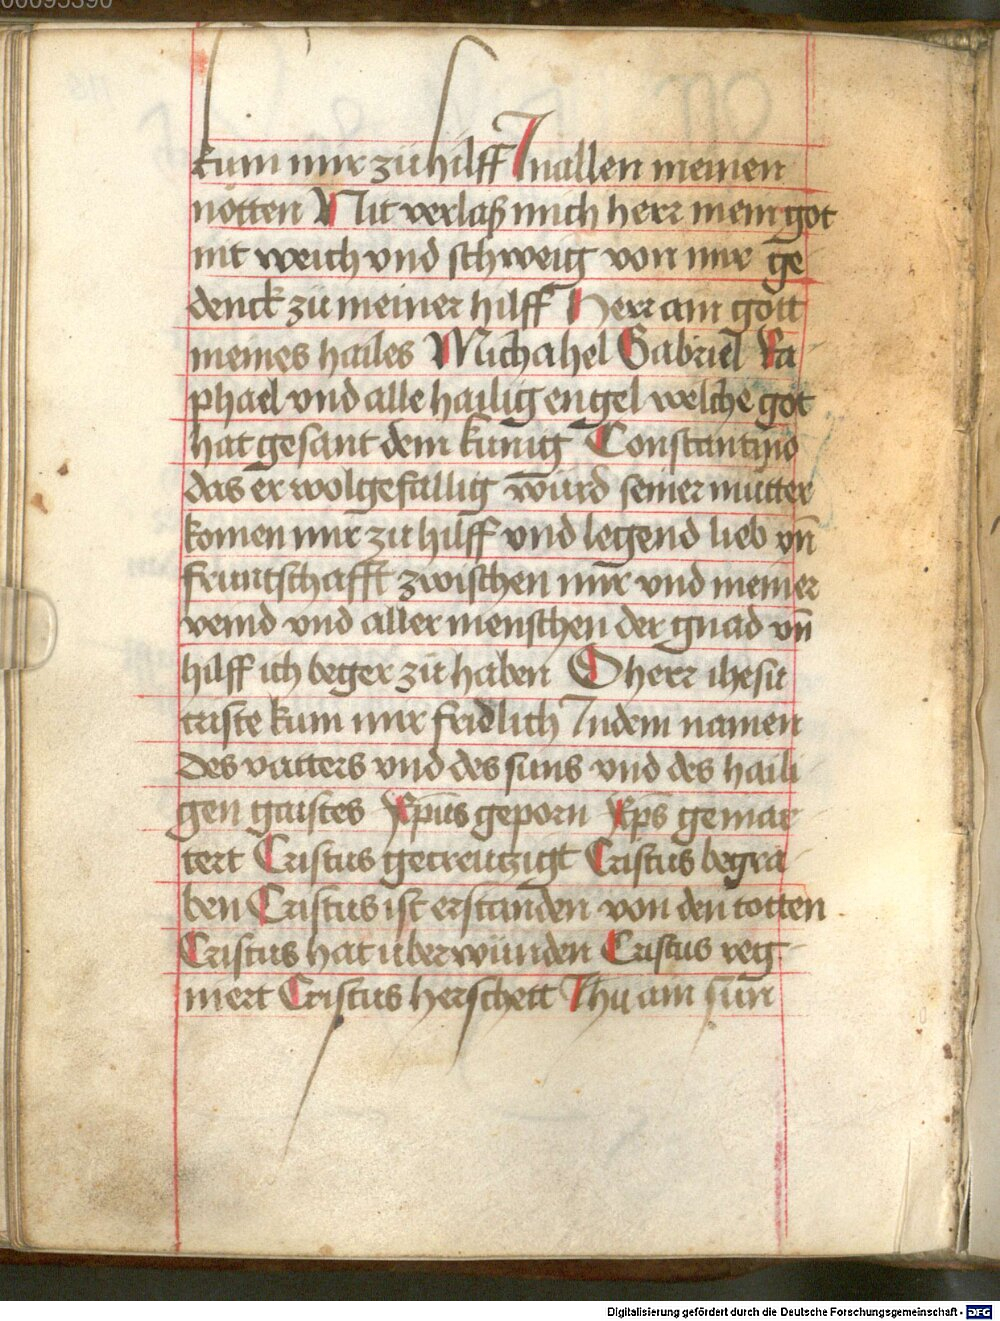 00095390
kum mir zů hilff In allen meinen
nötten Nit verlaß mich herr mein got
nit weich vnd schweig von mir ge
denck zů meiner hilff Herr ain gott
meines hailes Michahel Gabriel Ra
phael vnd alle hailig engel welche got
hat gesant dem künig Constantino
das er wolgefällig würd seiner mutter
komen mir zu hilff vnd legend lieb vn̄
fruntschafft zwischen mir vnd meiner
veind vnd aller menschen der gnad vn̄
hilff ich beger zů haben O herr ihesu
criste kum mir fridlich In dem namen
des vatters vnd des suns vnd des haili
gen gaistes Xp̄us geporn Xp̄s gemar
tert Cristus gecreutzigt Cristus begra
ben Cristus ist erstanden von den totten
Cristus hat uberwunden Cristus reg
niert Cristus herschett Ihū ain sun
Digitalisierung gefördert durch die Deutsche Forschungsgemeinschaft - DFG